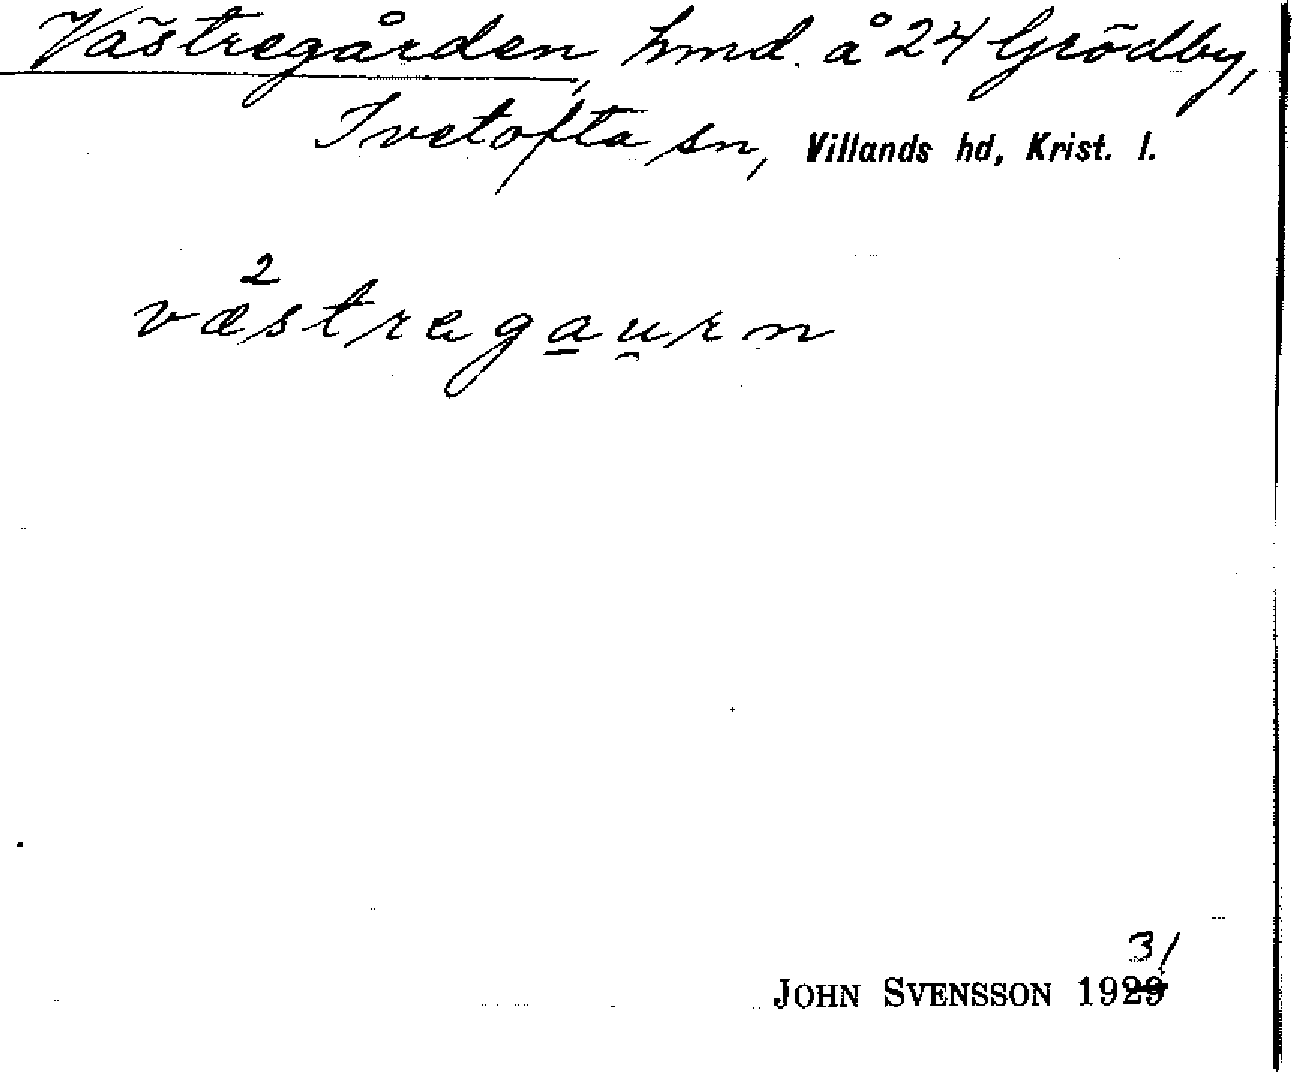 Västregården, hmd. å 24 Grödby,
Ivetofta sn, Villands hd, Krist. l.
2
væstregau̯rn
31
JOHN SVENSSON 1929